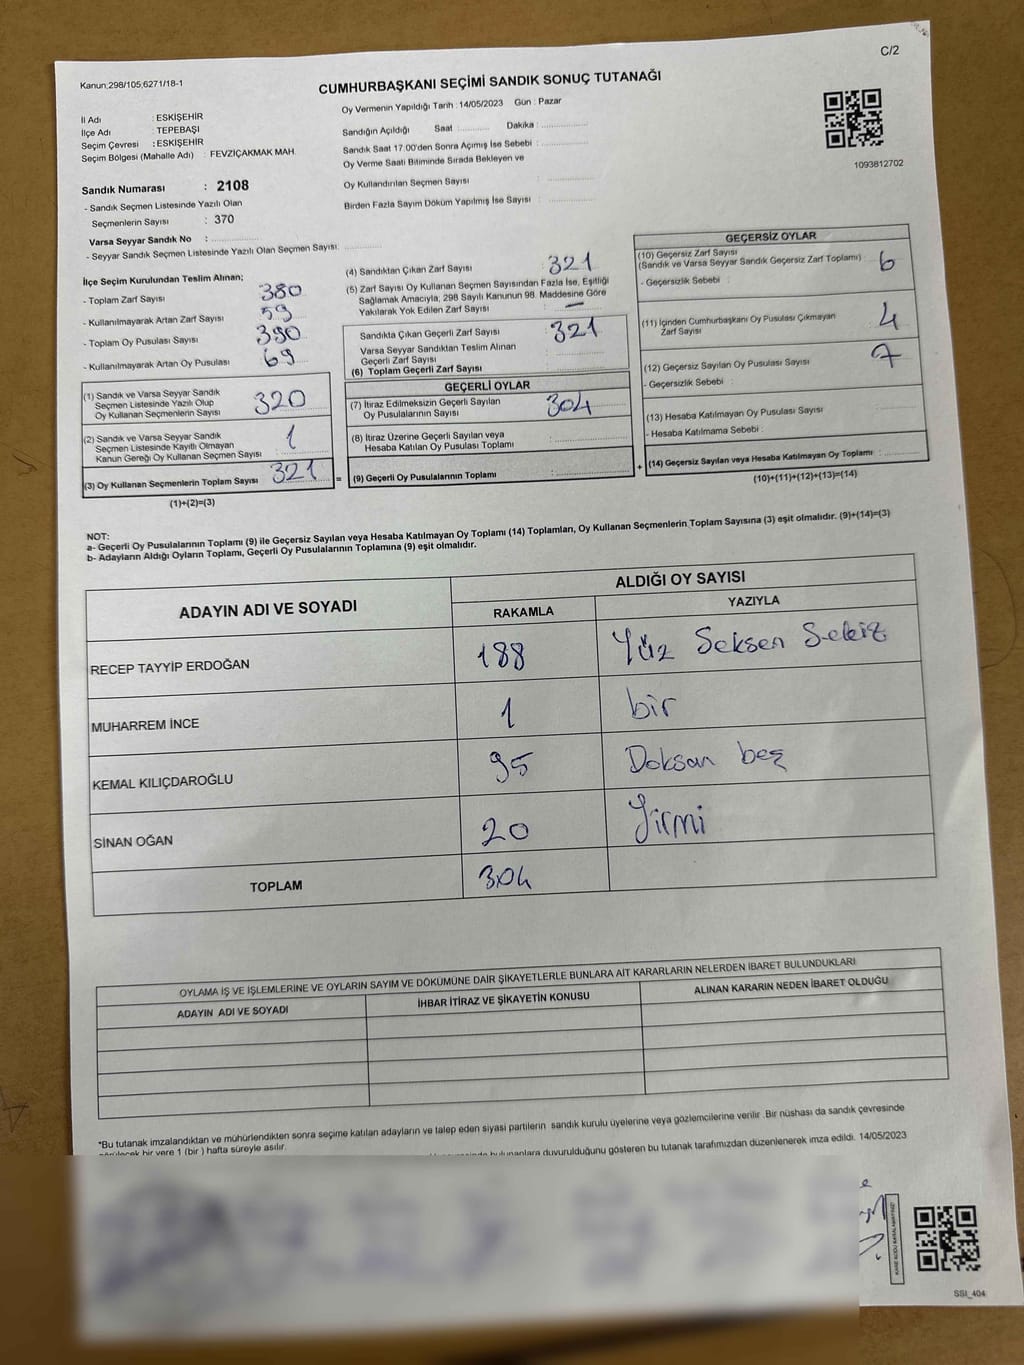 C/2
Kanun,298/105,6271/18-1
CUMHURBAŞKANI SEÇİMİ SANDIK SONUÇ TUTANAĞI
İl Adı : ESKİŞEHİR
İlçe Adı : TEPEBAŞI
Seçim Çevresi : ESKİŞEHİR
Seçim Bölgesi (Mahalle Adı) : FEVZİÇAKMAK MAH.
Oy Vermenin Yapıldığı Tarih : 14/05/2023 Gün : Pazar
Sandığın Açıldığı Saat : Dakika :
Sandık Saat 17.00'den Sonra Açımış İse Sebebi :
Oy Verme Saati Bitiminde Sırada Bekleyen ve
Oy Kullandırılan Seçmen Sayısı :
Birden Fazla Sayım Döküm Yapılmış İse Sayısı :
1093812702
Sandık Numarası : 2108
- Sandık Seçmen Listesinde Yazılı Olan
Seçmenlerin Sayısı : 370
Varsa Seyyar Sandık No :
- Seyyar Sandık Seçmen Listesinde Yazılı Olan Seçmen Sayısı
İlçe Seçim Kurulundan Teslim Alınan;
- Toplam Zarf Sayısı : 380
- Kullanılmayarak Artan Zarf Sayısı : 59
- Toplam Oy Pusulası Sayısı : 390
- Kullanılmayarak Artan Oy Pusulası : 69
(1) Sandık ve Varsa Seyyar Sandık
Seçmen Listesinde Yazılı Olup
Oy Kullanan Seçmenlerin Sayısı : 320
(2) Sandık ve Varsa Seyyar Sandık
Seçmen Listesinde Kayıtlı Olmayan
Kanun Gereği Oy Kullanan Seçmen Sayısı : 1
(3) Oy Kullanan Seçmenlerin Toplam Sayısı : 321
(1)+(2)=(3)
(4) Sandıktan Çıkan Zarf Sayısı : 321
(5) Zarf Sayısı Oy Kullanan Seçmen Sayısından Fazla İse, Eşitliği
Sağlamak Amacıyla, 298 Sayılı Kanunun 98. Maddesine Göre
Yakılarak Yok Edilen Zarf Sayısı : —
Sandıkta Çıkan Geçerli Zarf Sayısı : 321
Varsa Seyyar Sandıktan Teslim Alınan
Geçerli Zarf Sayısı :
(6) Toplam Geçerli Zarf Sayısı :
GEÇERLİ OYLAR
(7) İtiraz Edilmeksizin Geçerli Sayılan
Oy Pusulalarının Sayısı : 304
(8) İtiraz Üzerine Geçerli Sayılan veya
Hesaba Katılan Oy Pusulası Toplamı :
= (9) Geçerli Oy Pusulalarının Toplamı :
GEÇERSİZ OYLAR
(10) Geçersiz Zarf Sayısı
(Sandık ve Varsa Seyyar Sandık Geçersiz Zarf Toplamı) : 6
- Geçersizlik Sebebi :
(11) İçinden Cumhurbaşkanı Oy Pusulası Çıkmayan
Zarf Sayısı : 4
(12) Geçersiz Sayılan Oy Pusulası Sayısı : 7
- Geçersizlik Sebebi :
(13) Hesaba Katılmayan Oy Pusulası Sayısı :
- Hesaba Katılmama Sebebi :
+ (14) Geçersiz Sayılan veya Hesaba Katılmayan Oy Toplamı :
(10)+(11)+(12)+(13)=(14)
NOT:
a- Geçerli Oy Pusulalarının Toplamı (9) ile Geçersiz Sayılan veya Hesaba Katılmayan Oy Toplamı (14) Toplamları, Oy Kullanan Seçmenlerin Toplam Sayısına (3) eşit olmalıdır. (9)+(14)=(3)
b- Adayların Aldığı Oyların Toplamı, Geçerli Oy Pusulalarının Toplamına (9) eşit olmalıdır.
ADAYIN ADI VE SOYADI
ALDIĞI OY SAYISI
RAKAMLA YAZIYLA
RECEP TAYYİP ERDOĞAN 188 Yüz Seksen Sekiz
MUHARREM İNCE 1 bir
KEMAL KILIÇDAROĞLU 95 Doksan beş
SİNAN OĞAN 20 Yirmi
TOPLAM 304
OYLAMA İŞ VE İŞLEMLERİNE VE OYLARIN SAYIM VE DÖKÜMÜNE DAİR ŞİKAYETLERLE BUNLARA AİT KARARLARIN NELERDEN İBARET BULUNDUKLARI
ADAYIN ADI VE SOYADI İHBAR İTİRAZ VE ŞİKAYETİN KONUSU ALINAN KARARIN NEDEN İBARET OLDUĞU
*Bu tutanak imzalandıktan ve mühürlendikten sonra seçime katılan adayların ve talep eden siyasi partilerin sandık kurulu üyelerine veya gözlemcilerine verilir. Bir nüshası da sandık çevresinde
görülecek bir yere 1 (bir) hafta süreyle asılır.
bulunanlara duyurulduğunu gösteren bu tutanak tarafımızdan düzenlenerek imza edildi. 14/05/2023
SSI_404